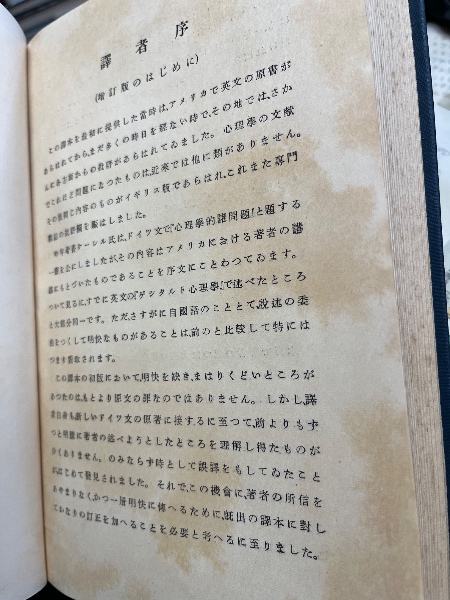 譯者序
(增訂版のはじめに)
この譯本を最初に提供した當時は、アメリカで英文の原書が
あらはれてから、まだ多くの時日を經ない時で、その地では、さか
んに各方面からの批評があらはれてゐました。心理學の文献
でこれほど問題になつたものは、近來では他に類がありません。
その後同じ內容のものがイギリス版であらはれ、これまた專門
雜誌の批評欄を賑はしました。
昨年著者ケーレル氏は、ドイツ文で『心理學的諸問題』と題する
一書を公にしましたが、その內容はアメリカにおける著者の講
義にもとづいたものであることを序文にことわつてゐます。
ついて見るに、すでに英文の『ゲシタルト心理學』で述べたところ
と大部分同一です。ただ、さすがに自國語のこととて、說述の委
曲をつくして明快なものがあることは、前のと比較して特には
つきり看取されます。
この譯本の初版において、明快を缺き、まはりくどいところが
あつたのは、もとより原文の罪なのではありません。しかし、譯
者自身も、新しいドイツ文の原著に接するに至つて、前よりもず
つと明瞭に著者の述べようとしたところを理解し得たものが
少くありません。のみならず時として誤譯をもしてゐたこと
がはじめて發見されました。それで、この機會に、著者の所信を
あやまりなく、かつ一層明快に傳へるために、旣出の譯本に對し
てかなりの訂正を加へることを必要と考へるに至りました。